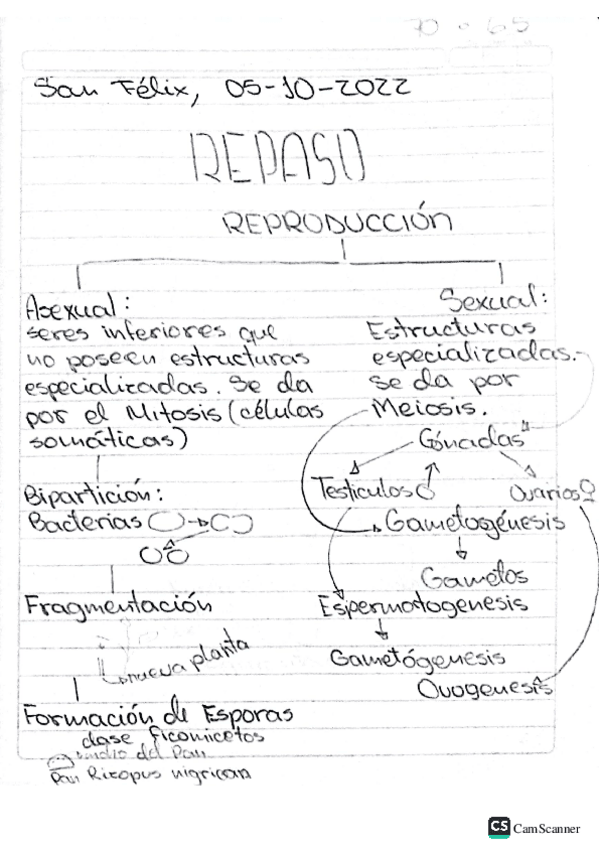 San Félix, 05-10-2022
REPASO
REPRODUCCIÓN
Asexual:
seres inferiores que
no poseen estructuras
especializadas. Se da
por el Mitosis (células
somáticas)
Bipartición:
Bacterias
Fragmentación
nueva planta
Formación de Esporas
clase ficomicetos
del Pan
Pan Rizopus nigrican
Sexual:
Estructuras
especializadas.
se da por
Meiosis.
Gónadas
Testículos♂
Ovarios♀
Gametogénesis
Gametos
Espermatogenesis
Gametógenesis
Ovogenesis
CS CamScanner